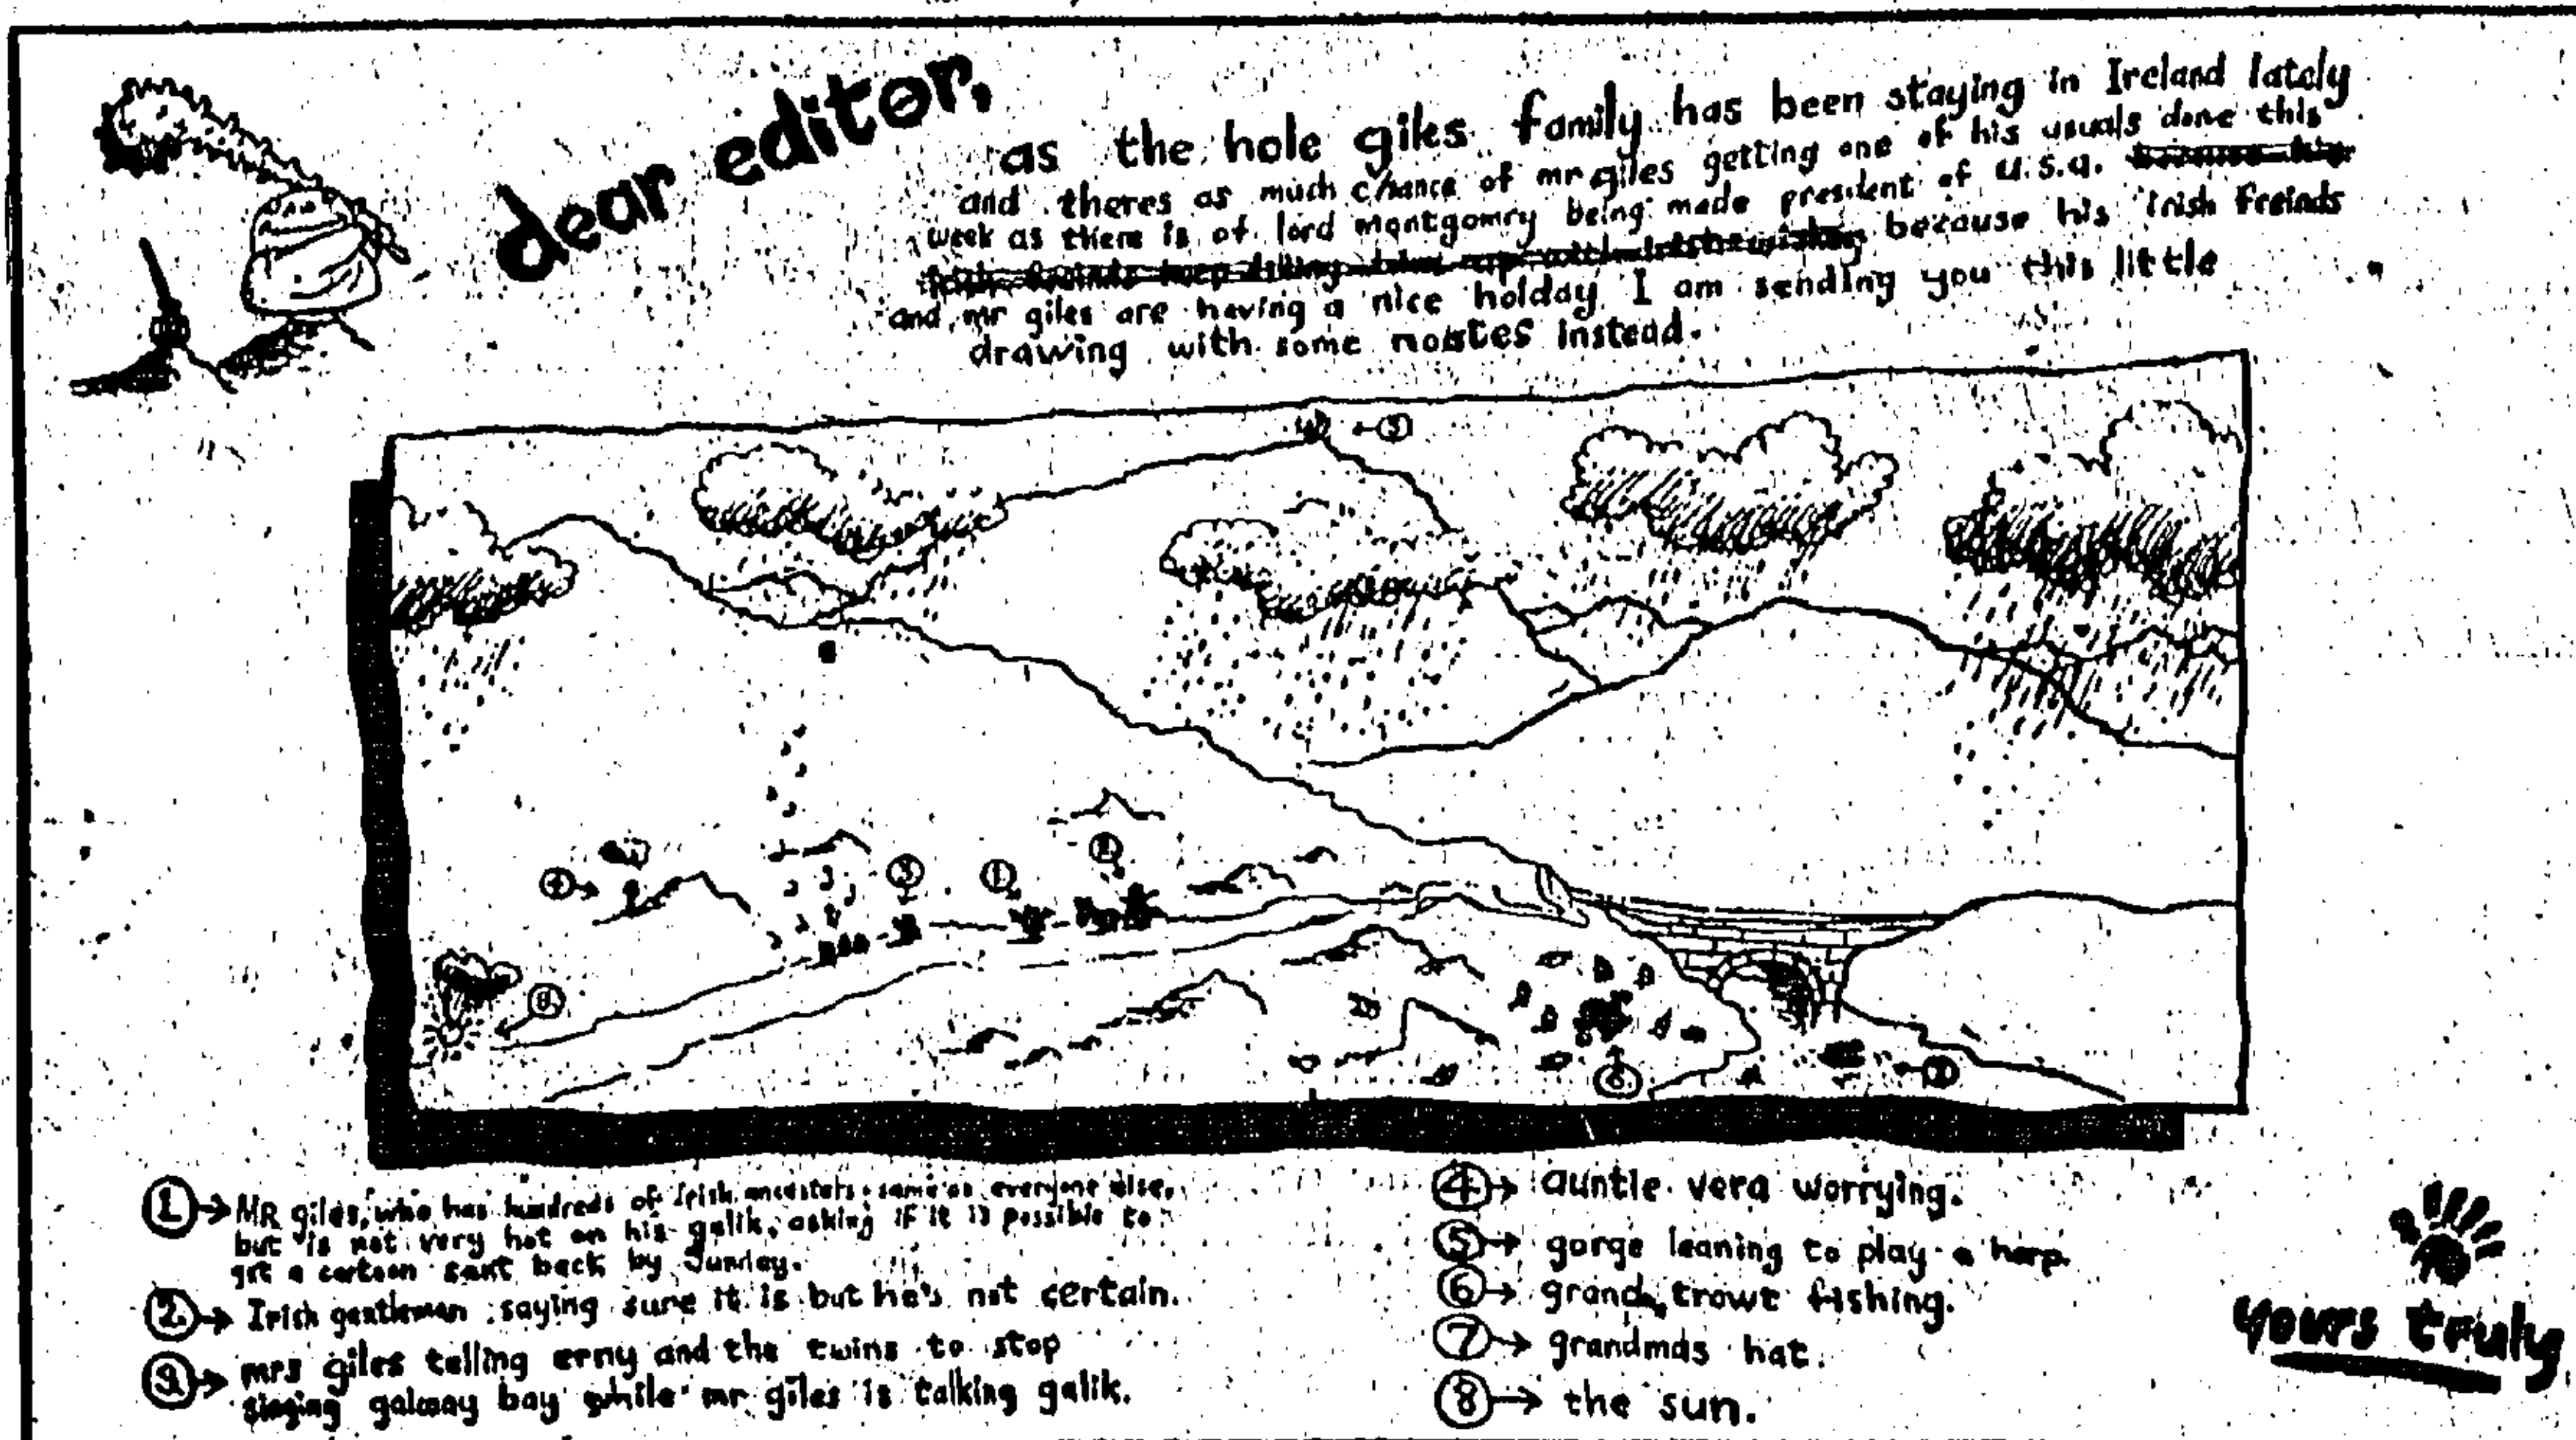 dear editor,
as the hole giles family has been staying in Ireland lately
and theres as much chance of mr giles getting one of his usuals done this
week as there is of lord montgomry being made president of u.s.a. because his
irish freinds keep filling him up with irish wisky because his irish freinds
and mr giles are having a nice holday I am sending you this little
drawing with some nostes instead.
5
4
3
1
2
8
6
7
1 → MR giles, who has hundreds of Irish ancestors same as everyone else,
but is not very hot on his galik, asking if it is possible to
get a cartoon sent back by Sunday.
2 → Irish gentleman saying sure it is but he's not certain.
3 → mrs giles telling erny and the twins to stop
singing galway bay while mr giles is talking galik.
4 → auntie vera worrying.
5 → gorge leaning to play a harp.
6 → grandma trowt fishing.
7 → grandmas hat.
8 → the sun.
yours truly